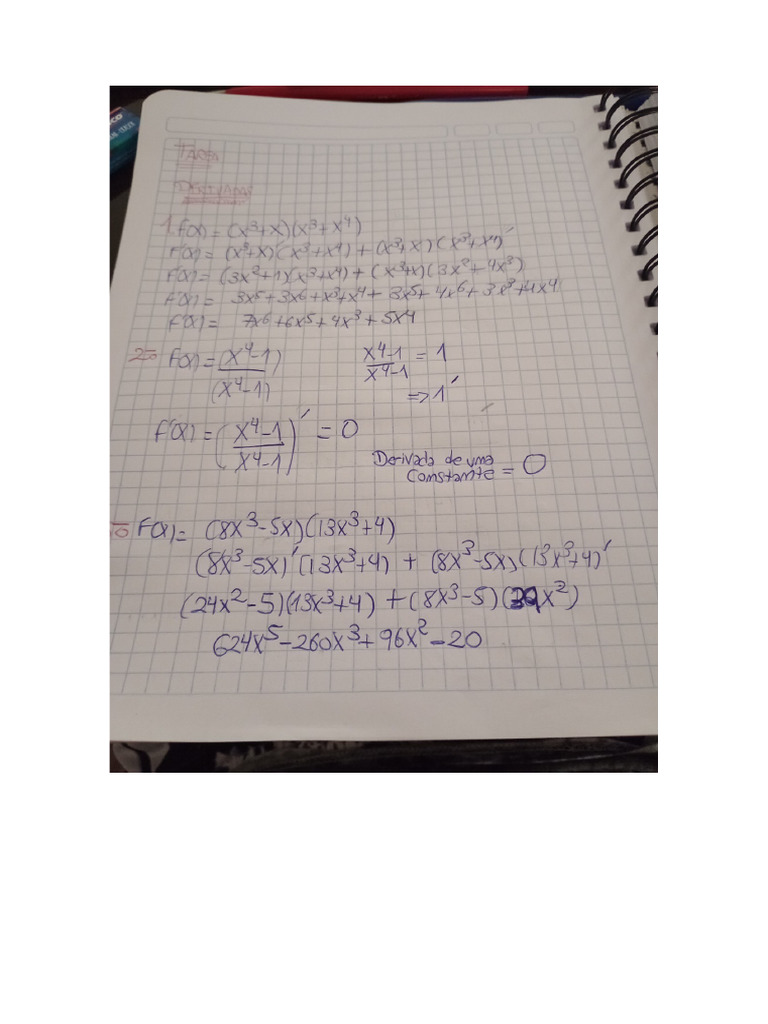 TAREA
DERIVADAS
1. F(x) = (x³+x)(x³+x⁴)
F'(x) = (x³+x)'(x³+x⁴) + (x³+x)(x³+x⁴)'
F'(x) = (3x²+1)(x³+x⁴) + (x³+x)(3x²+4x³)
F'(x) = 3x⁵+3x⁶+x³+x⁴+3x⁵+4x⁶+3x³+4x⁴
F'(x) = 7x⁶+6x⁵+4x³+5x⁴
2º F(x) = (x⁴-1)/(x⁴-1) x⁴-1/x⁴-1 = 1
=> 1'
F'(x) = (x⁴-1/x⁴-1)' = 0
Derivada de uma
Constante = 0
F(x) = (8x³-5x)(13x³+4)
(8x³-5x)'(13x³+4) + (8x³-5x)(13x³+4)'
(24x²-5)(13x³+4) + (8x³-5)(39x²)
624x⁵-260x³+96x²-20